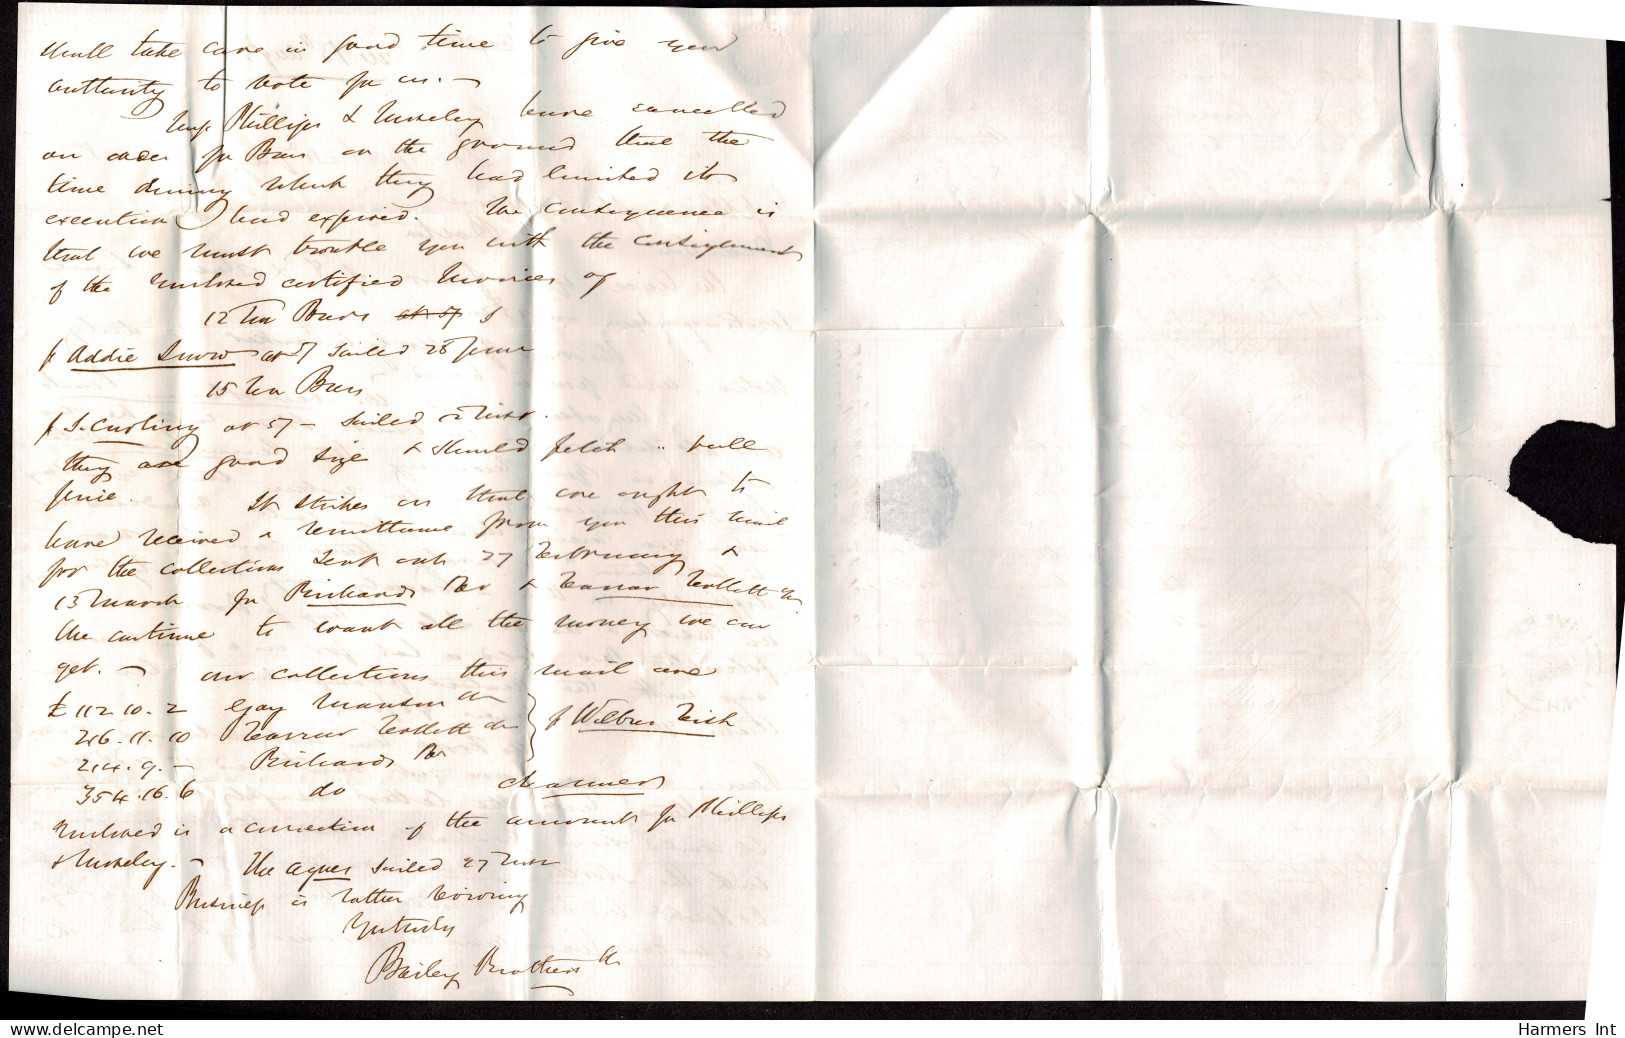 shall take care in good time to give you
authority to vote for us. —
Messrs Phillips & Moseley have cancelled
an order for Bars on the ground that the
time during which they had limited its
execution had expired. The consequence is
that we must trouble you with the consignment
of the enclosed certified Invoices of
12 Ton Bars
p Addie Snow at 57 sailed 28 June
15 Ton Bars
p S. Curling at 57 — sailed inst.
they are good size & should fetch full
price. It strikes us that we ought to
have received a remittance from you this mail
for the collections sent out 27 February &
13 March for Richards & Farrar Follett &c
We continue to want all the money we can
get. — Our collections this mail are
£ 112.10.2 Gay Manton &c
246.11.10 Farrar Follett &c } p Wilbur Fisk
214.9.— Richards
354.16.6 do
Enclosed is a correction of the amount for Phillips
& Moseley. — The Agnes sailed 27 inst
Business is rather
Yrs truly
Bailey Brothers &c
Harmers Int